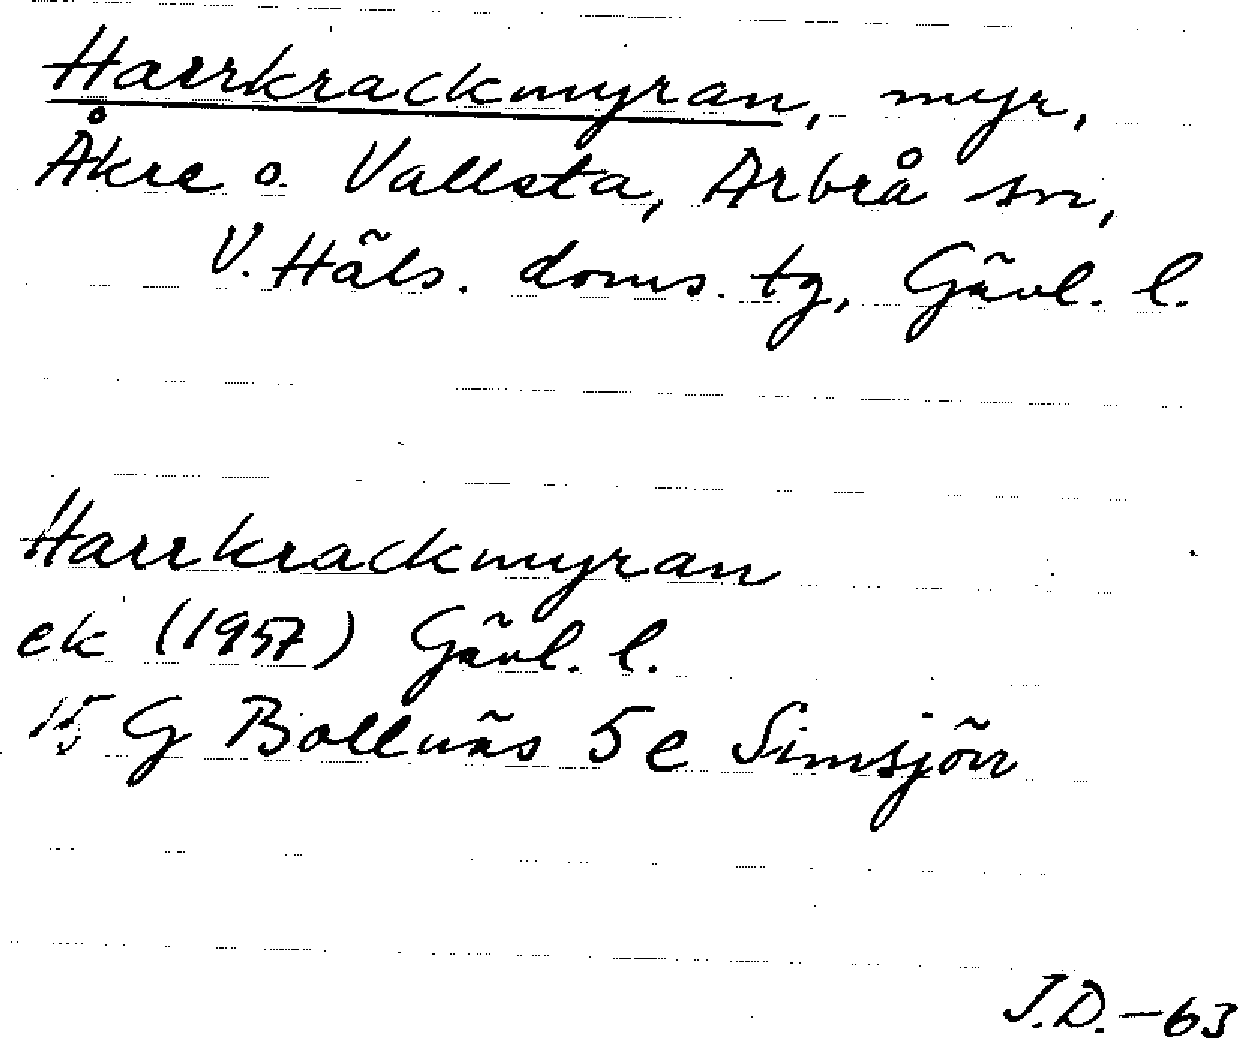 Harrkrackmyran, myr,
Åkre o. Vallsta, Arbrå sn,
V. Häls. doms. tg, Gävl. l.
Harrkrackmyran
ek (1957) Gävl. l.
15 G Bollnäs 5 e Simsjön
J.D.-63